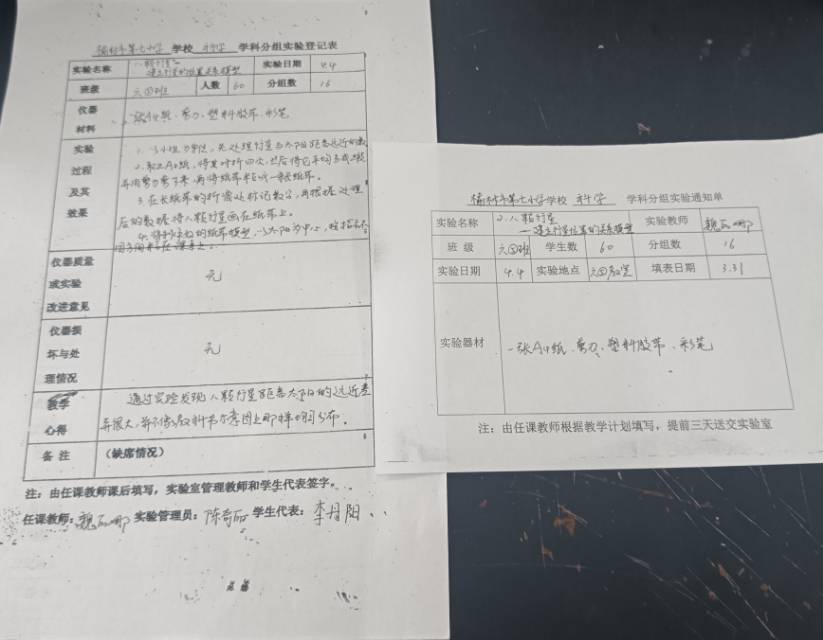 榆林市第七小学 学校 科学 学科分组实验登记表
实验名称 八颗行星 建立行星的位置关系模型 实验日期 4.4
班级 六①班 人数 60 分组数 16
仪器材料 一张A4纸、剪刀、塑料胶带、彩笔
实验过程及其效果
1.以小组为单位,先处理行星与太阳距离远近的数
2.取A4纸,将其对折四次,然后将它
并用剪刀剪下来,再将纸带粘成一条长纸带。
3.在长纸带的折痕处标记数字,再根据处理
后的数据将八颗行星画在纸带上。
4.将制作好的纸带模型,以太阳为中心,
仪器质量或实验改进意见 无
仪器损坏与处理情况 无
教学心得 通过实验发现八颗行星距离太阳的远近差
异很大,并不像教科书示意图上那样均匀分布。
备注 (缺席情况)
注:由任课教师课后填写,实验室管理教师和学生代表签字。
任课教师: 实验管理员: 学生代表:李丹阳
榆林市第七小学学校 科学 学科分组实验通知单
实验名称 2.八颗行星 —建立行星位置的关系模型 实验教师
班级 六①班 学生数 60 分组数 16
实验日期 4.4 实验地点 六①教室 填表日期 3.31
实验器材 一张A4纸、剪刀、塑料胶带、彩笔
注:由任课教师根据教学计划填写,提前三天送交实验室